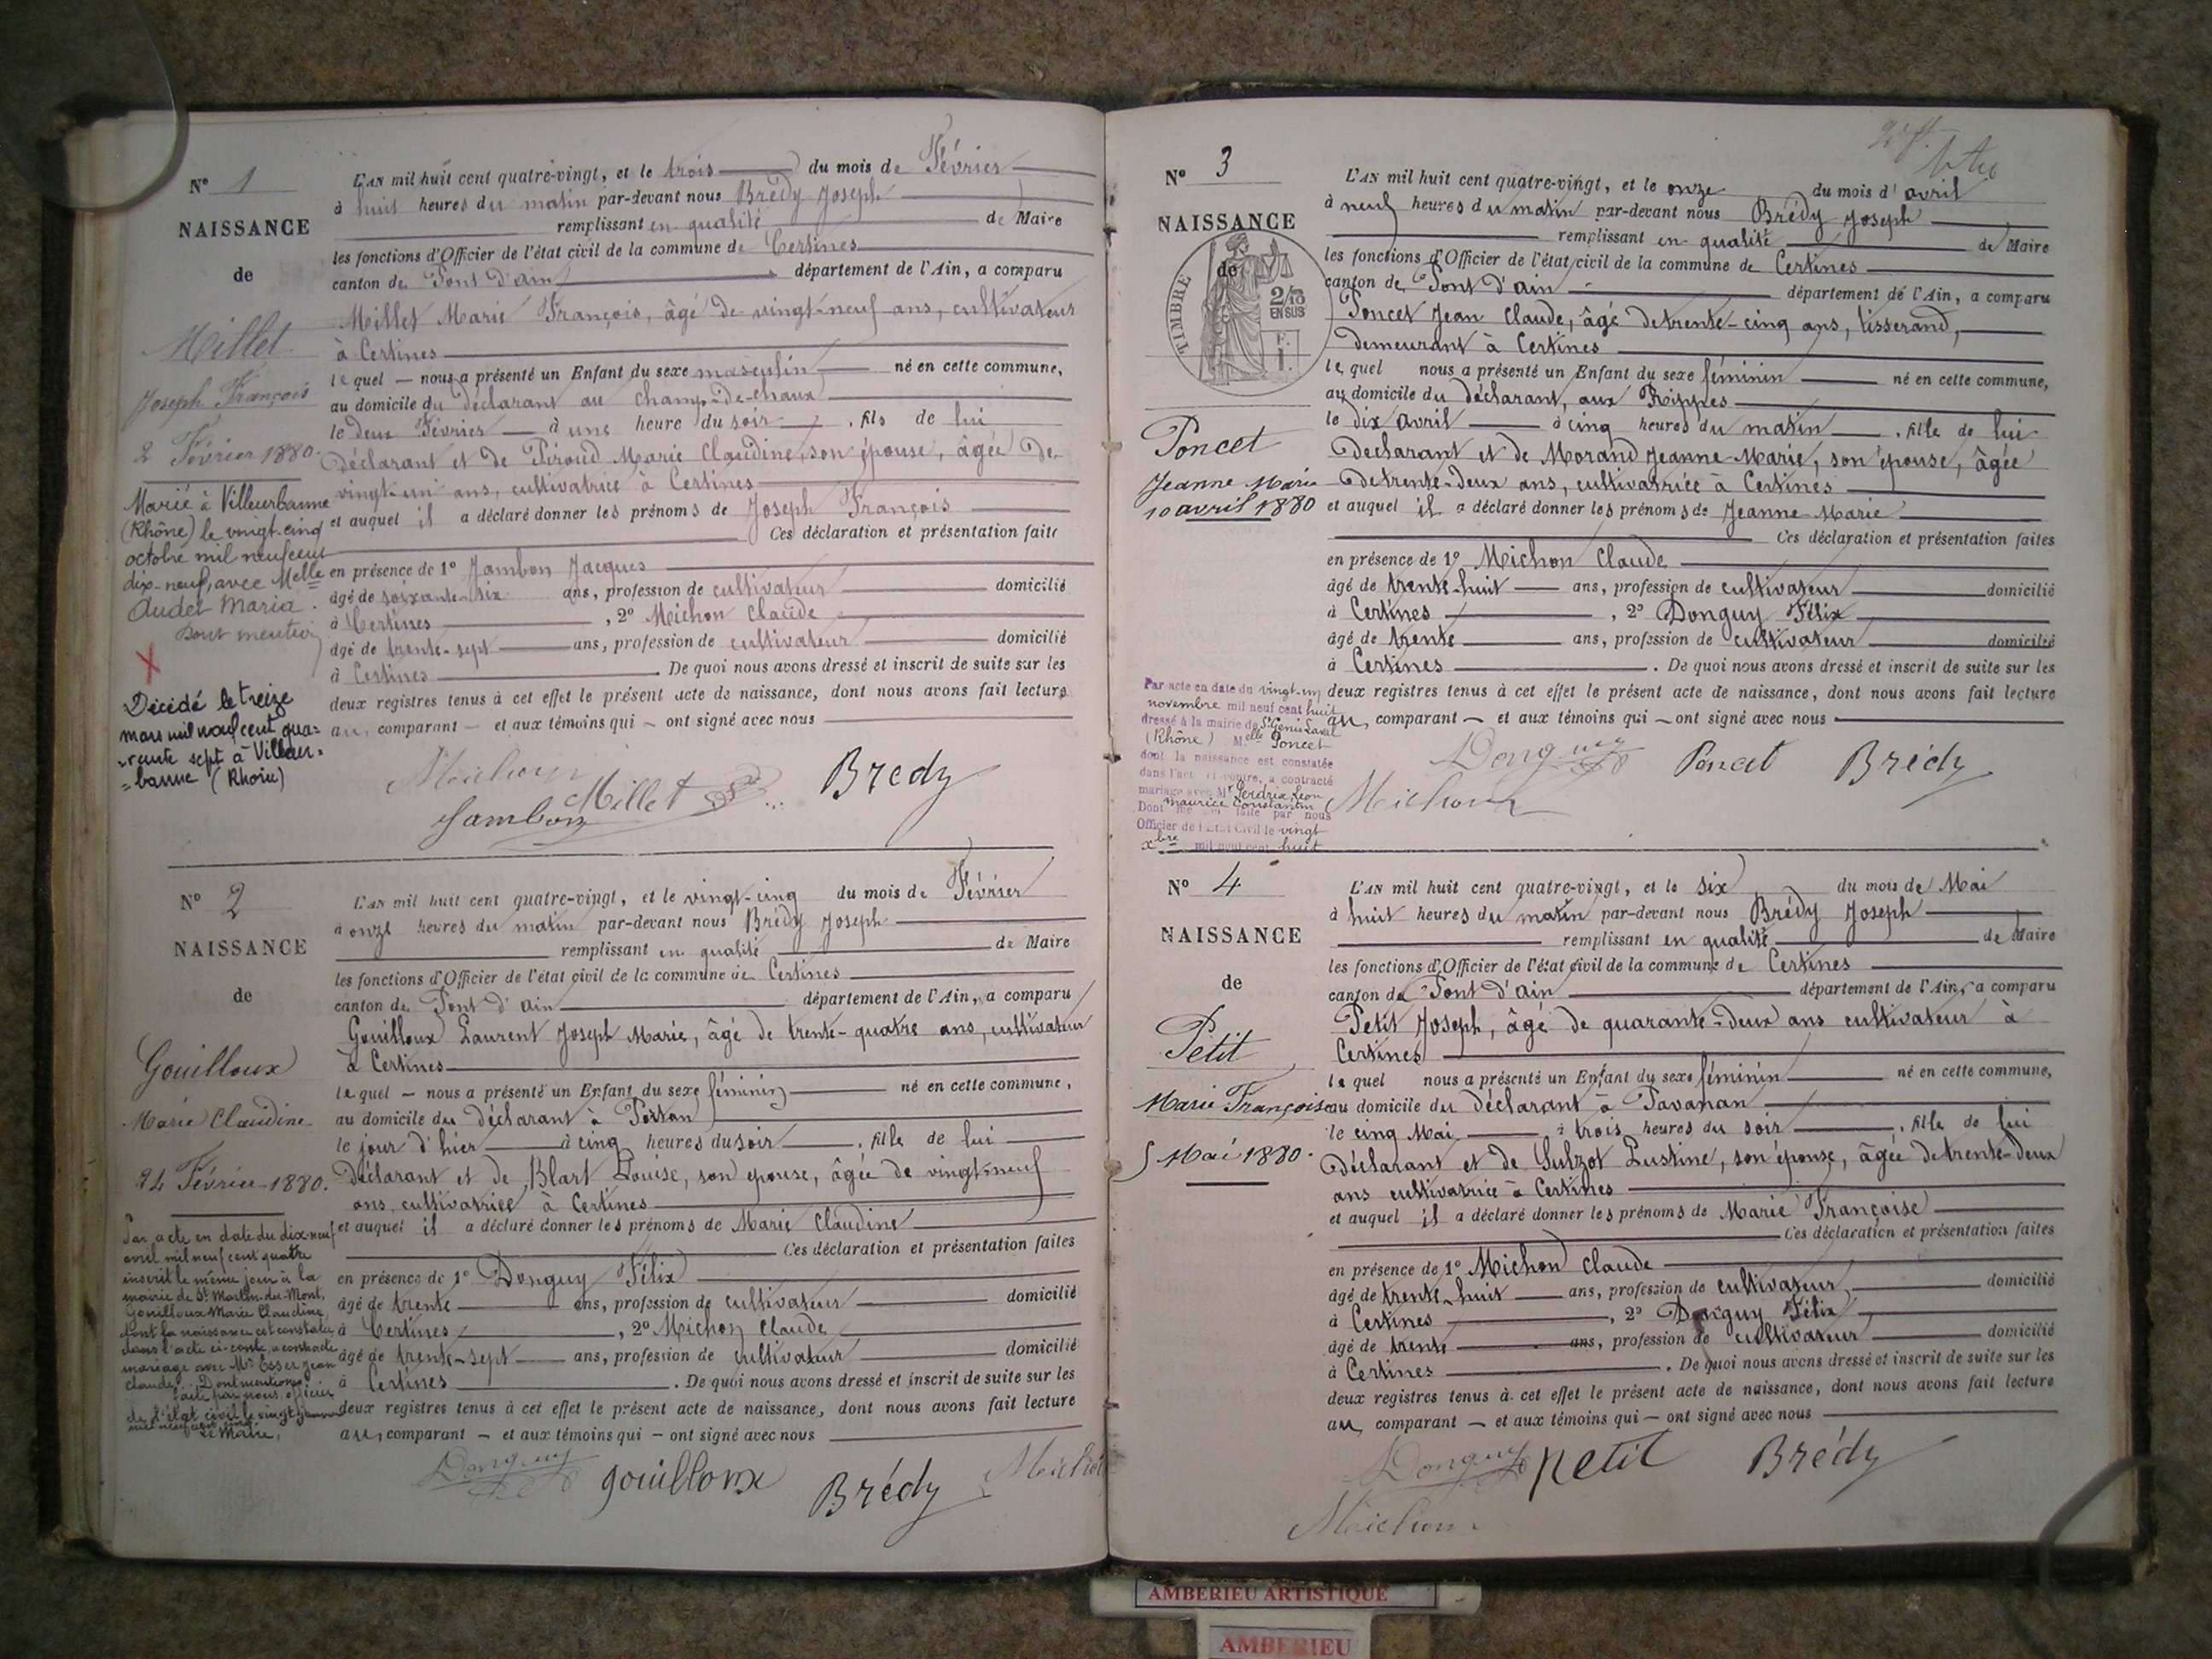 N° 1
NAISSANCE
de
Millet
Joseph François
2 Février 1880.
Marié à Villeurbanne
(Rhône) le vingt-cinq
octobre mil neuf cent
dix-neuf, avec Melle
Audet Maria.
Dont mention
X
Décédé le treize
mars mil neuf cent qua=
=rante sept à Villeur=
=banne (Rhône)
L'AN mil huit cent quatre-vingt, et le trois du mois de Février
à huit heures du matin par-devant nous Brédy Joseph
remplissant en qualité de Maire
les fonctions d'Officier de l'état civil de la commune de Certines
canton de Pont d'Ain département de l'Ain, a comparu
Millet Marie François, âgé de vingt-neuf ans, cultivateur
à Certines
lequel — nous a présenté un Enfant du sexe masculin né en cette commune,
au domicile du déclarant au Champ-de-chaux
le deux Février à une heure du soir, fils de lui
Déclarant et de Piroud Marie Claudine, son épouse, âgée de
vingt-un ans, cultivatrice à Certines
et auquel il a déclaré donner les prénoms de Joseph François
Ces déclaration et présentation faites
en présence de 1° Jambon Jacques
âgé de soixante-six ans, profession de cultivateur domicilié
à Certines, 2° Michon Claude
âgé de trente-sept ans, profession de cultivateur domicilié
à Certines. De quoi nous avons dressé et inscrit de suite sur les
deux registres tenus à cet effet le présent acte de naissance, dont nous avons fait lecture
au comparant — et aux témoins qui — ont signé avec nous
Michon
Jambon Millet Brédy
N° 2
NAISSANCE
de
Gouilloux
Marie Claudine
24 Février 1880.
Par acte en date du dix-neuf
avril mil neuf cent quatre
inscrit le même jour à la
mairie de St Martin-du-Mont,
Gouilloux Marie Claudine
dont la naissance est constatée
dans l'acte ci-contre, a contracté
mariage avec Mr Esser Jean
Claude. Dont mention
faite par nous officier
de l'état civil le vingt janvier
mil neuf cent cinq
Le Maire,
L'AN mil huit cent quatre-vingt, et le vingt-cinq du mois de Février
à onze heures du matin par-devant nous Brédy Joseph
remplissant en qualité de Maire
les fonctions d'Officier de l'état civil de la commune de Certines
canton de Pont d'Ain département de l'Ain, a comparu
Gouilloux Laurent Joseph Marie, âgé de trente-quatre ans, cultivateur
à Certines
lequel — nous a présenté un Enfant du sexe féminin né en cette commune,
au domicile du déclarant à
le jour d'hier à cinq heures du soir, fille de lui
Déclarant et de Blart Louise, son épouse, âgée de vingt-neuf
ans, cultivatrice à Certines
et auquel il a déclaré donner les prénoms de Marie Claudine
Ces déclaration et présentation faites
en présence de 1° Donguy Félix
âgé de trente ans, profession de cultivateur domicilié
à Certines, 2° Michon Claude
âgé de trente-sept ans, profession de cultivateur domicilié
à Certines. De quoi nous avons dressé et inscrit de suite sur les
deux registres tenus à cet effet le présent acte de naissance, dont nous avons fait lecture
au comparant — et aux témoins qui — ont signé avec nous
Donguy gouilloux Brédy Michon
N° 3
NAISSANCE
de
TIMBRE
2/10
EN SUS
F.
1.
Poncet
Jeanne Marie
10 avril 1880
Par acte en date du vingt-un
novembre mil neuf cent huit
dressé à la mairie de St Genis Laval
(Rhône) Melle Poncet
dont la naissance est constatée
dans l'acte ci-contre, a contracté
mariage avec Mr Perdrix Léon
Maurice Constantin
Dont mention faite par nous
Officier de l'Etat Civil le vingt
xbre mil neuf cent huit
L'AN mil huit cent quatre-vingt, et le onze du mois d'avril
à neuf heures du matin par-devant nous Brédy Joseph
remplissant en qualité de Maire
les fonctions d'Officier de l'état civil de la commune de Certines
canton de Pont d'ain département de l'Ain, a comparu
Poncet Jean Claude, âgé de trente-cinq ans, tisserand,
demeurant à Certines
lequel nous a présenté un Enfant du sexe féminin né en cette commune,
au domicile du déclarant, aux Rippes
le dix avril à cinq heures du matin, fille de lui
Déclarant et de Morand Jeanne-Marie, son épouse, âgée
de trente-deux ans, cultivatrice à Certines
et auquel il a déclaré donner les prénoms de Jeanne-Marie
Ces déclaration et présentation faites
en présence de 1° Michon Claude
âgé de trente-huit ans, profession de cultivateur domicilié
à Certines, 2° Donguy Félix
âgé de trente ans, profession de cultivateur domicilié
à Certines. De quoi nous avons dressé et inscrit de suite sur les
deux registres tenus à cet effet le présent acte de naissance, dont nous avons fait lecture
au comparant — et aux témoins qui — ont signé avec nous
Donguy Poncet Brédy
Michon
N° 4
NAISSANCE
de
Petit
Marie Françoise
5 Mai 1880.
L'AN mil huit cent quatre-vingt, et le six du mois de Mai
à huit heures du matin par-devant nous Brédy Joseph
remplissant en qualité de Maire
les fonctions d'Officier de l'état civil de la commune de Certines
canton de Pont d'ain département de l'Ain, a comparu
Petit Joseph, âgé de quarante-deux ans cultivateur à
Certines
lequel nous a présenté un Enfant du sexe féminin né en cette commune,
au domicile du déclarant à Pavanan
le cinq Mai à trois heures du soir, fille de lui
Déclarant et de Justine, son épouse, âgée de trente-deux
ans cultivatrice à Certines
et auquel il a déclaré donner les prénoms de Marie Françoise
Ces déclaration et présentation faites
en présence de 1° Michon Claude
âgé de trente-huit ans, profession de cultivateur domicilié
à Certines, 2° Donguy Félix
âgé de trente ans, profession de cultivateur domicilié
à Certines. De quoi nous avons dressé et inscrit de suite sur les
deux registres tenus à cet effet le présent acte de naissance, dont nous avons fait lecture
au comparant — et aux témoins qui — ont signé avec nous
Donguy petit Brédy
Michon
AMBERIEU ARTISTIQUE
AMBERIEU